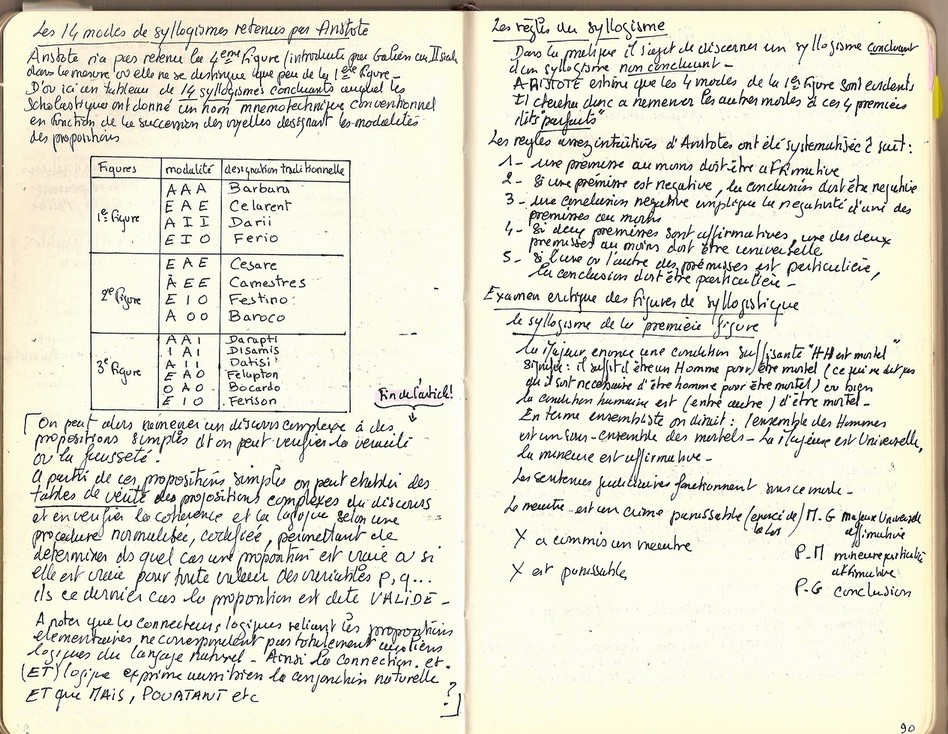 Les 14 modes de syllogismes retenus par Aristote
Aristote n'a pas retenu la 4eme Figure (introduite par Galien au II siecle
dans la mesure où elle ne se distingue que peu de la 1ere figure_
D'où ici un tableau de 14 syllogismes concluants auquel les
Scholastiques ont donné un nom mnemotechnique conventionnel
en fonction de la succession des voyelles designant les modalités
des propositions
Figures modalité designation traditionnelle
1e Figure
A A A Barbara
E A E Celarent
A I I Darii
E I O Ferio
2e Figure
E A E Cesare
A E E Camestres
E I O Festino
A O O Baroco
3e Figure
A A I Darapti
I A I Disamis
A I I Datisi
E A O Felapton
O A O Bocardo
E I O Ferison
Fin de l'article!
On peut alors ramener un discours complexe à des
propositions simples dt on peut verifier la veracité
ou la fausseté.
A partir de ces propositions simples on peut etablir des
tables de verité des propositions complexes du discours
et en verifier la coherence et la logique selon une
procedure normalisée, codifiée, permettant de
determiner ds quel cas une proposition est vraie ou si
elle est vraie pour toute valeur des variables p, q...
ds ce dernier cas la proposition est dite VALIDE_
A noter que les connecteurs logiques reliant les propositions
elementaires ne correspondent pas totalement aux liens
logiques du langage naturel_ Ainsi la connection. et.
(ET) logique exprime aussi bien la conjonction naturelle
ET que MAIS, POURTANT etc ?
Les règles du syllogisme
Dans la pratique il s'agit de discerner un syllogisme concluant
d'un syllogisme non concluant_
ARISTOTE estime que les 4 modes de la 1e Figure sont evidents
Il cherche donc a ramener les autres modes à ces 4 premiers
dits "parfaits"
Les regles assez intuitives d'Aristote ont été systematisées c suit:
1- une premisse au moins doit être affirmative
2- Si une prémisse est negative, la conclusion doit être negative
3- une conclusion negative implique la negativité d'une des
premisses au moins
4- Si deux premisses sont affirmatives, une des deux
premisses au moins doit être universelle
5- Si l'une ou l'autre des prémisses est particulière,
la conclusion doit être particulière_
Examen critique des figures de syllogistique
le syllogisme de la première figure
la Majeur enonce une condition suffisante "HH est mortel"
signifie: il suffit d'être un Homme pour être mortel (ce qui ne dit pas
qu'il soit necessaire d'être homme pour être mortel) ou bien
la condition humaine est (entre autre) d'être mortel_
En terme ensembliste on dirait: l'ensemble des Hommes
est un sous-ensemble des mortels_ La Majeure est Universelle,
la mineure est affirmative_
Les sentences judiciaires fonctionnent sur ce mode_
Le meurtre est un crime punissable (enoncé de la loi) M_G majeure Universelle
affirmative
X a commis un meurtre P_M mineure particulière
affirmative
X est punissable P_G conclusion
90